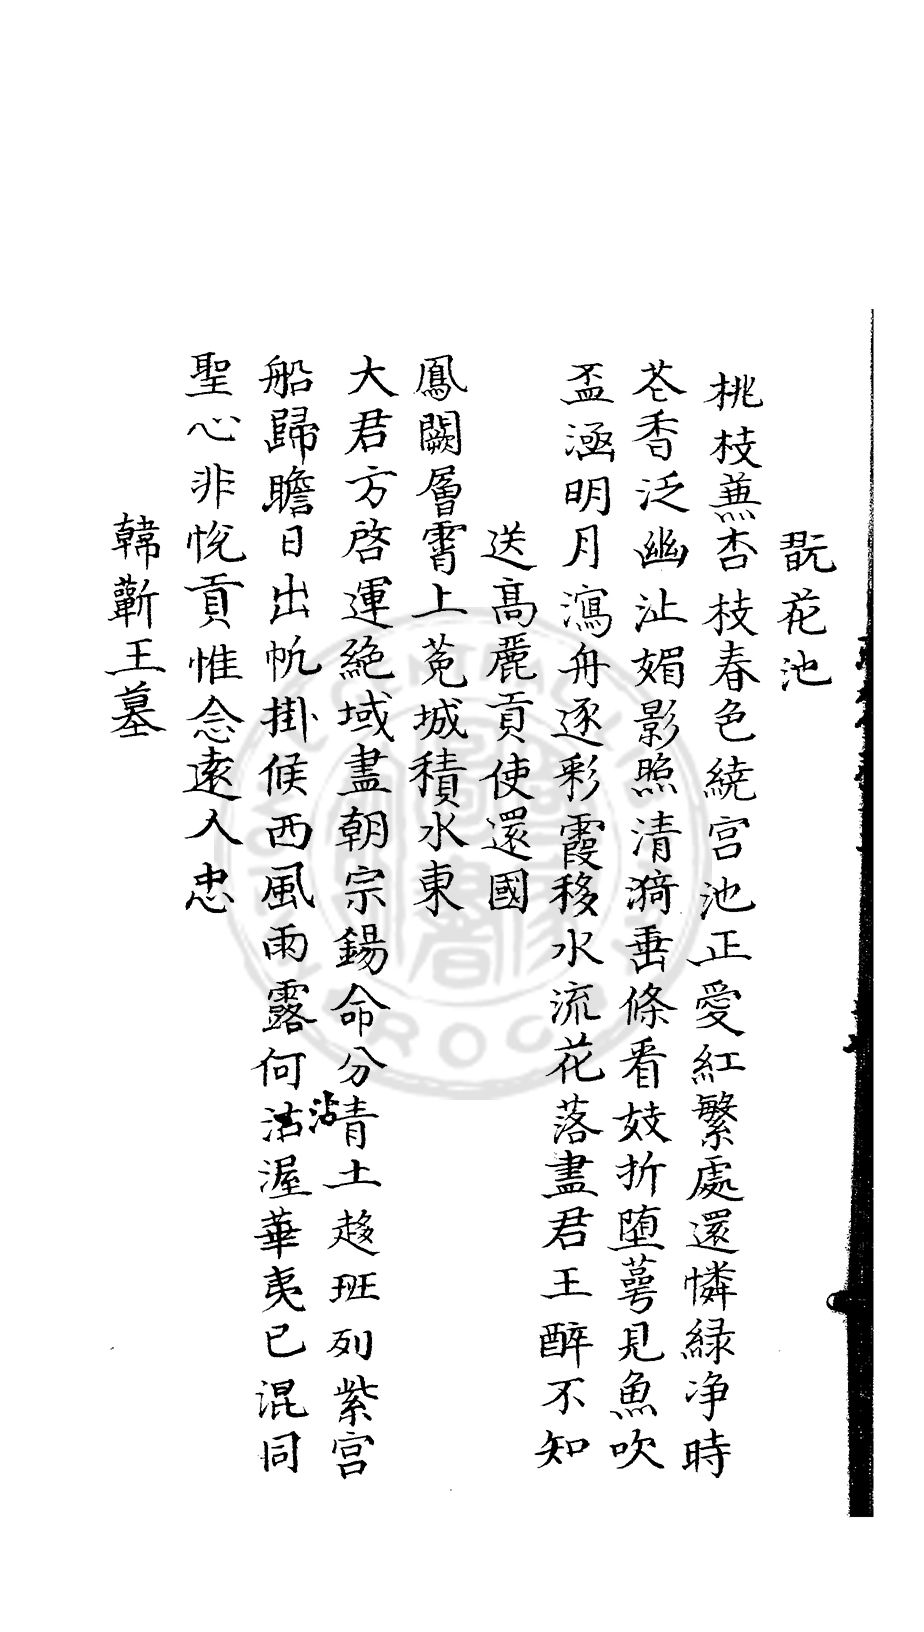 翫花池
桃枝蕪杏枝春色繞宮池正愛紅繁處還憐緑净時
苍香泛幽沚媚影照清漪垂條看妓折堕萼見魚吹
盃涵明月瀉舟逐彩霞移水流花落盡君王醉不知
送髙麗貢使還國
鳳闕層霄上菟城積水東
大君方啓運絶域盡朝宗錫命分青土趍班列紫宮
沾
船歸瞻日出帆掛候西風雨露何沽渥華夷已混同
聖心非悅貢惟念遠人忠
韓蘄王墓